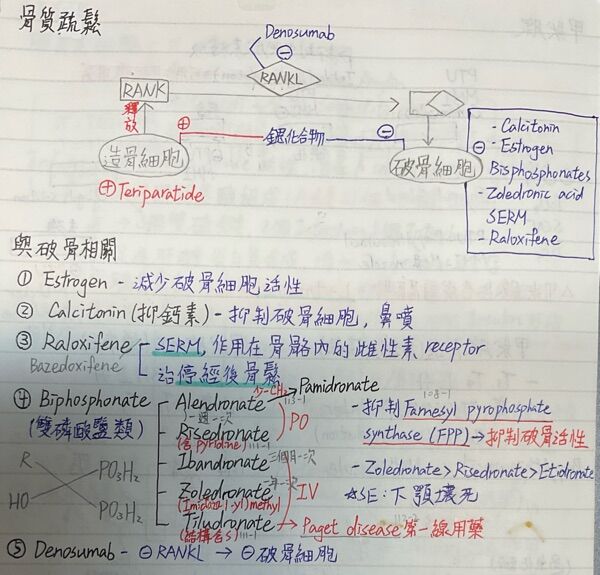 骨質疏鬆
Denosumab
⊖
RANKL
RANK
釋放
⊕ 鍶化合物 ⊖
造骨細胞
破骨細胞
⊕ Teriparatide
⊖
- Calcitonin
- Estrogen
Bisphosphonates
- Zoledronic acid
SERM
- Raloxifene
與破骨相關
① Estrogen - 減少破骨細胞活性
② Calcitonin (抑鈣素) - 抑制破骨細胞, 鼻噴
③ Raloxifene - SERM, 作用在骨骼內的雌性素 receptor
Bazedoxifene - 治停經後骨鬆
④ Biphosphonate
(雙磷酸鹽類)
Alendronate 少-CH₂ Pamidronate
一週一次
Risedronate PO
(含 pyridine)
Ibandronate 三個月一次
Zoledronate 一年一次 IV
(Imidazol-1-yl) methyl
Tiludronate → Paget disease 第一線用藥
(結構含S)
- 抑制 Farnesyl pyrophosphate
synthase (FPP) → 抑制破骨活性
- Zoledronate > Risedronate > Etidronate
*SE: 下顎壞死
R PO₃H₂
HO PO₃H₂
⑤ Denosumab - ⊖ RANKL → ⊖ 破骨細胞